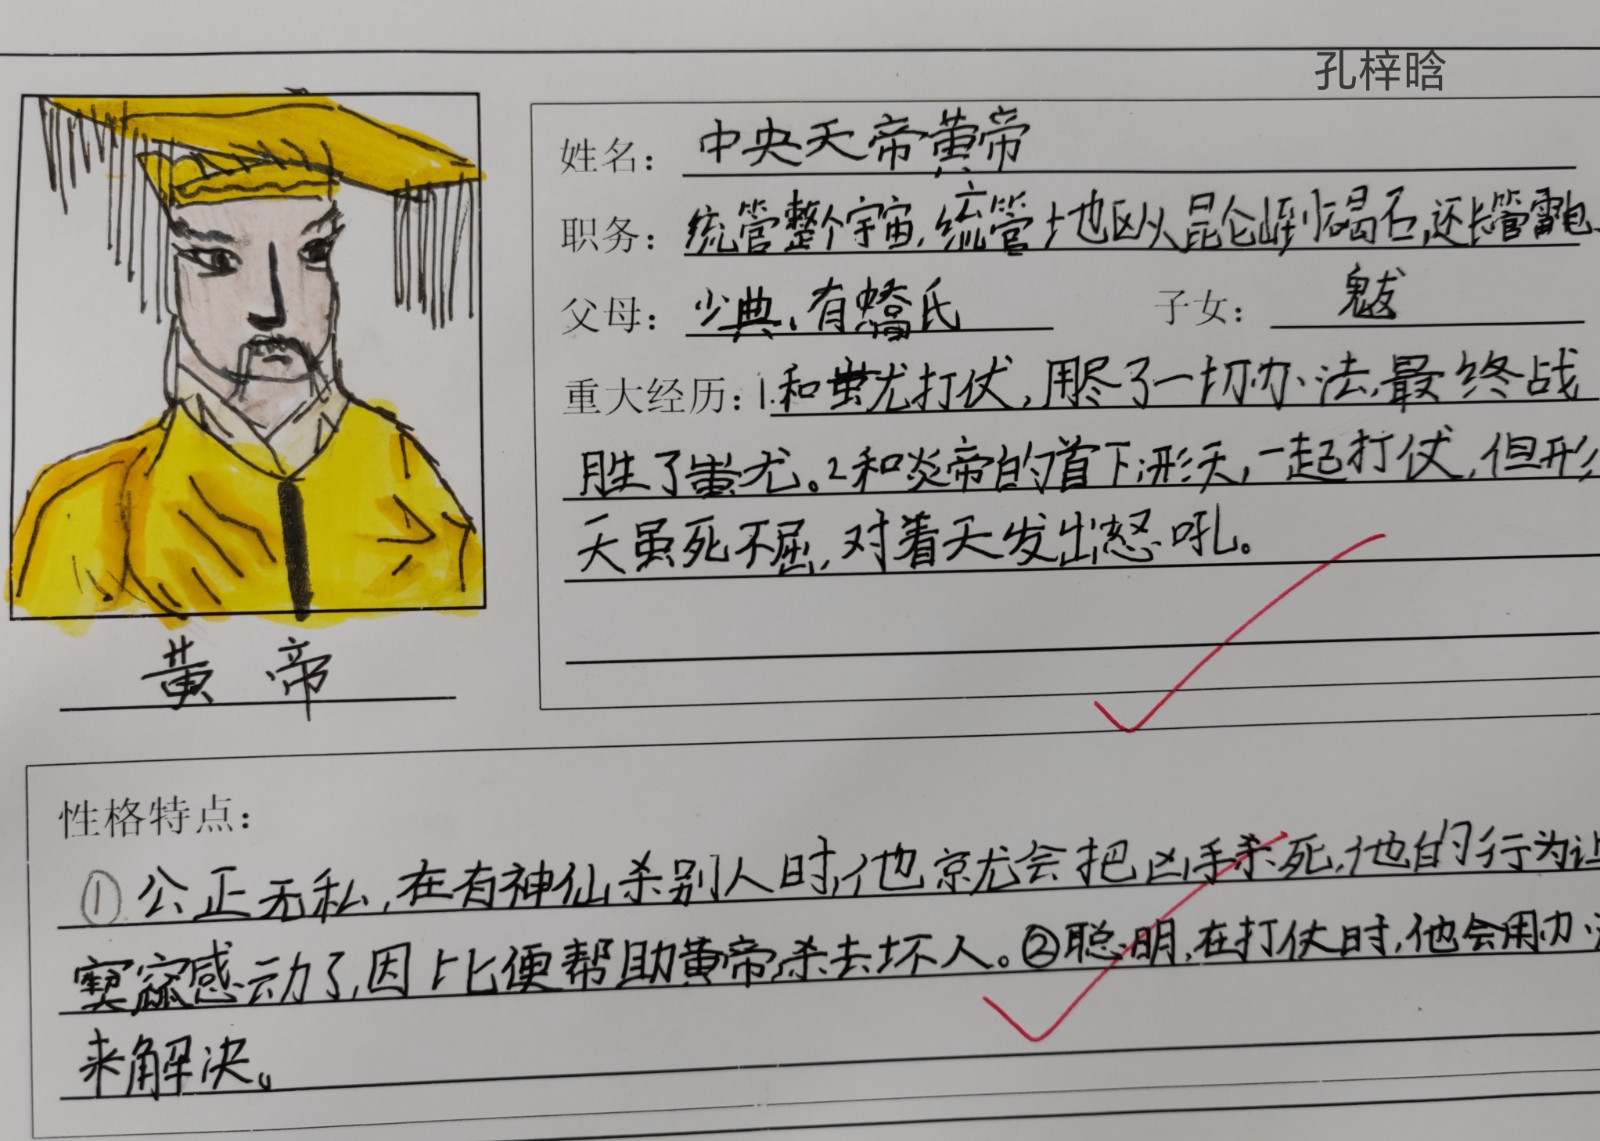 孔梓晗
姓名：中央天帝黄帝
职务：统管整个宇宙，统管地区从昆仑山到碣石，还长管雷电、
父母：少典、有蟜氏 子女：魃
重大经历：1.和蚩尤打仗，用尽了一切办法，最终战
胜了蚩尤。2和炎帝的首下形天，一起打仗，但形
天虽死不屈，对着天发出怒吼。
黄帝
性格特点：
①公正无私，在有神仙杀别人时，他京尤会把凶手杀死，他的行为让
窫窳感动了，因此便帮助黄帝杀去坏人。②聪明，在打仗时，他会用办法
来解决。